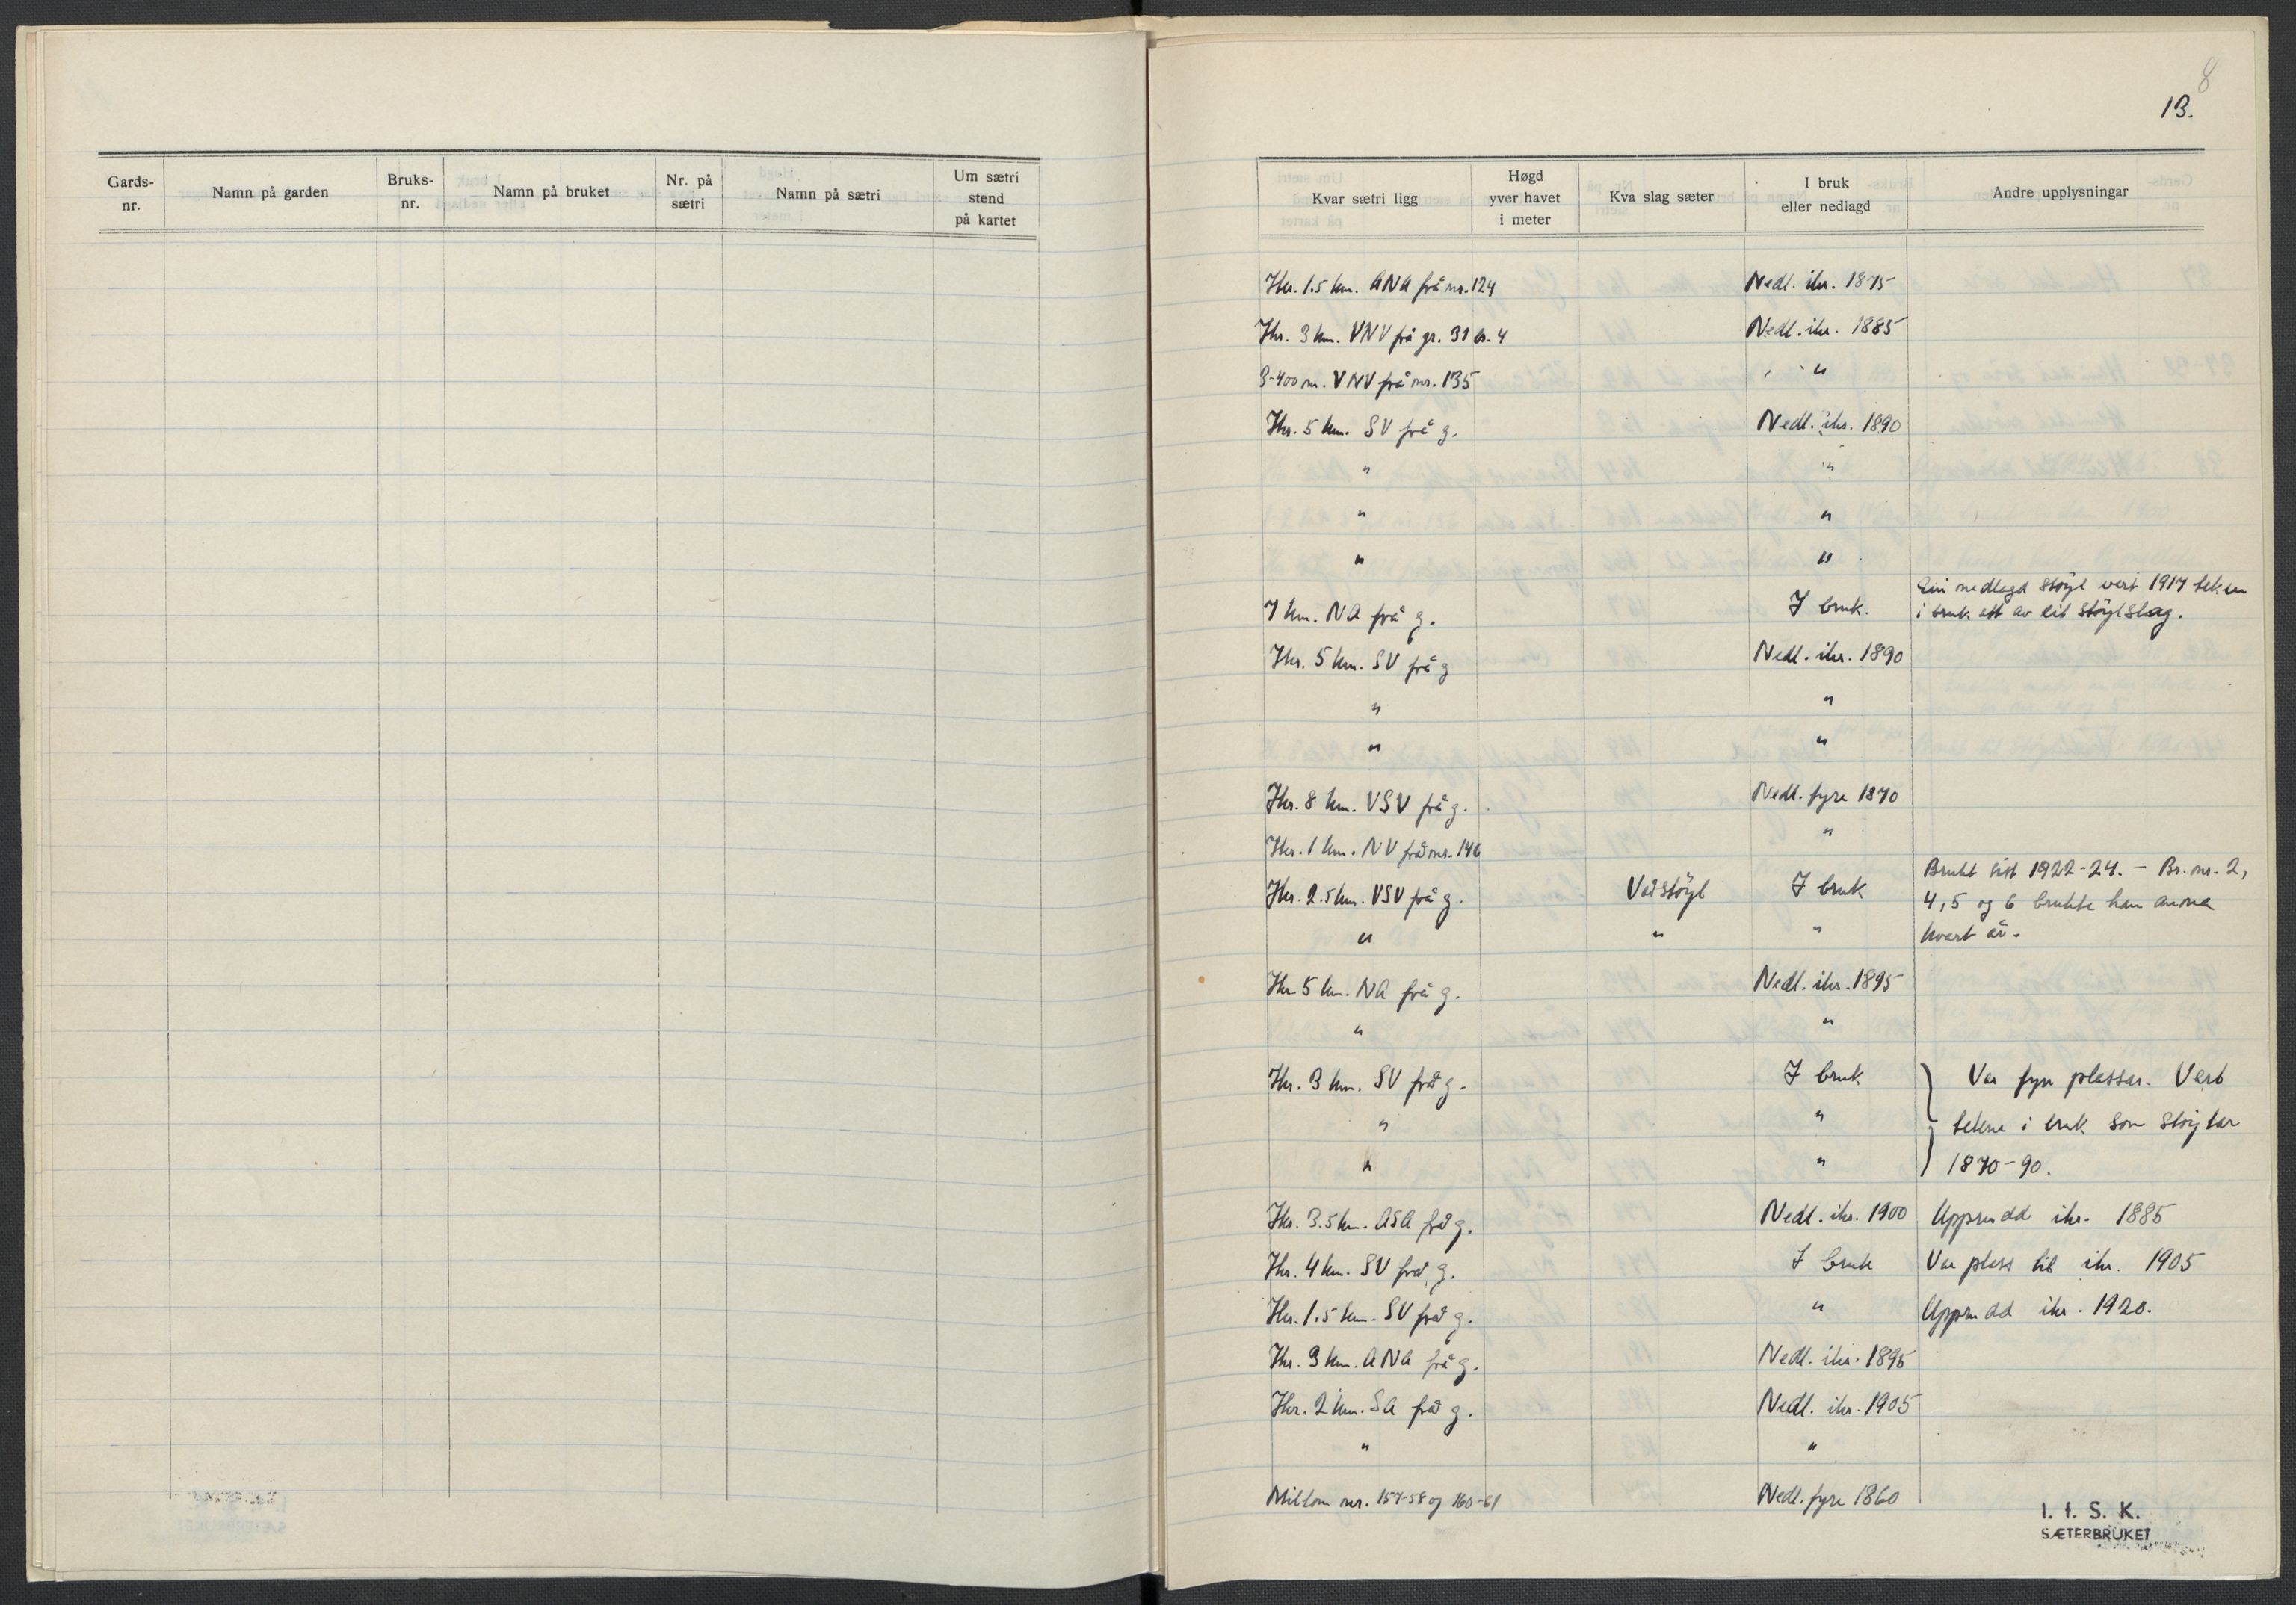 8
13.
Gards-
nr.
Namn på garden
Bruks-
nr.
Namn på bruket
Nr. på
sætri
Namn på sætri
Um sætri
stend
på kartet
Kvar sætri ligg
Høgd
yver havet
i meter
Kva slag sæter
I bruk
eller nedlagd
Andre upplysningar
Ikr. 1.5 km. ANA frå nr. 124 Nedl. ikr. 1875
Ikr. 3 km. VNV frå gr. 31 br. 4 Nedl. ikr. 1885
3-400 m. VNV frå nr. 135 "
Ikr. 5 km. SV frå g. Nedl. ikr. 1890
" "
" "
" "
7 km. NA frå g. I bruk. Ein nedlagd støyl vert 1917 teken
i bruk att av eit støylslag.
Ikr. 5 km. SV frå g Nedl. ikr. 1890
" "
" "
Ikr. 8 km. VSV frå g. Nedl. fyre 1870
Ikr. 1 km. NV frå nr. 146 "
Ikr. 2.5 km. VSV frå g. Vårstøyl I bruk Brukt sist 1922-24. – Br. nr. 2,
4, 5 og 6 brukte han anna
" " " kvart år.
Ikr. 5 km. NA frå g. Nedl. ikr. 1895
" "
Ikr. 3 km. SV frå g. I bruk Var fyrr plassar. Vart
" " tekne i bruk som støylar
" " 1870-90.
Ikr. 3.5 km. ASA frå g. Nedl. ikr. 1900 Upprudd ikr. 1885
Ikr. 4 km. SV frå g. I bruk Var plass til ikr. 1905
Ikr. 1.5 km. SV frå g. " Upprudd ikr. 1920.
Ikr. 3 km. ANA frå g. Nedl. ikr. 1895
Ikr. 2 km. SA frå g. Nedl. ikr. 1905
" "
Millom nr. 157-58 og 160-61 Nedl. fyre 1860
I. f. S. K.
SÆTERBRUKET